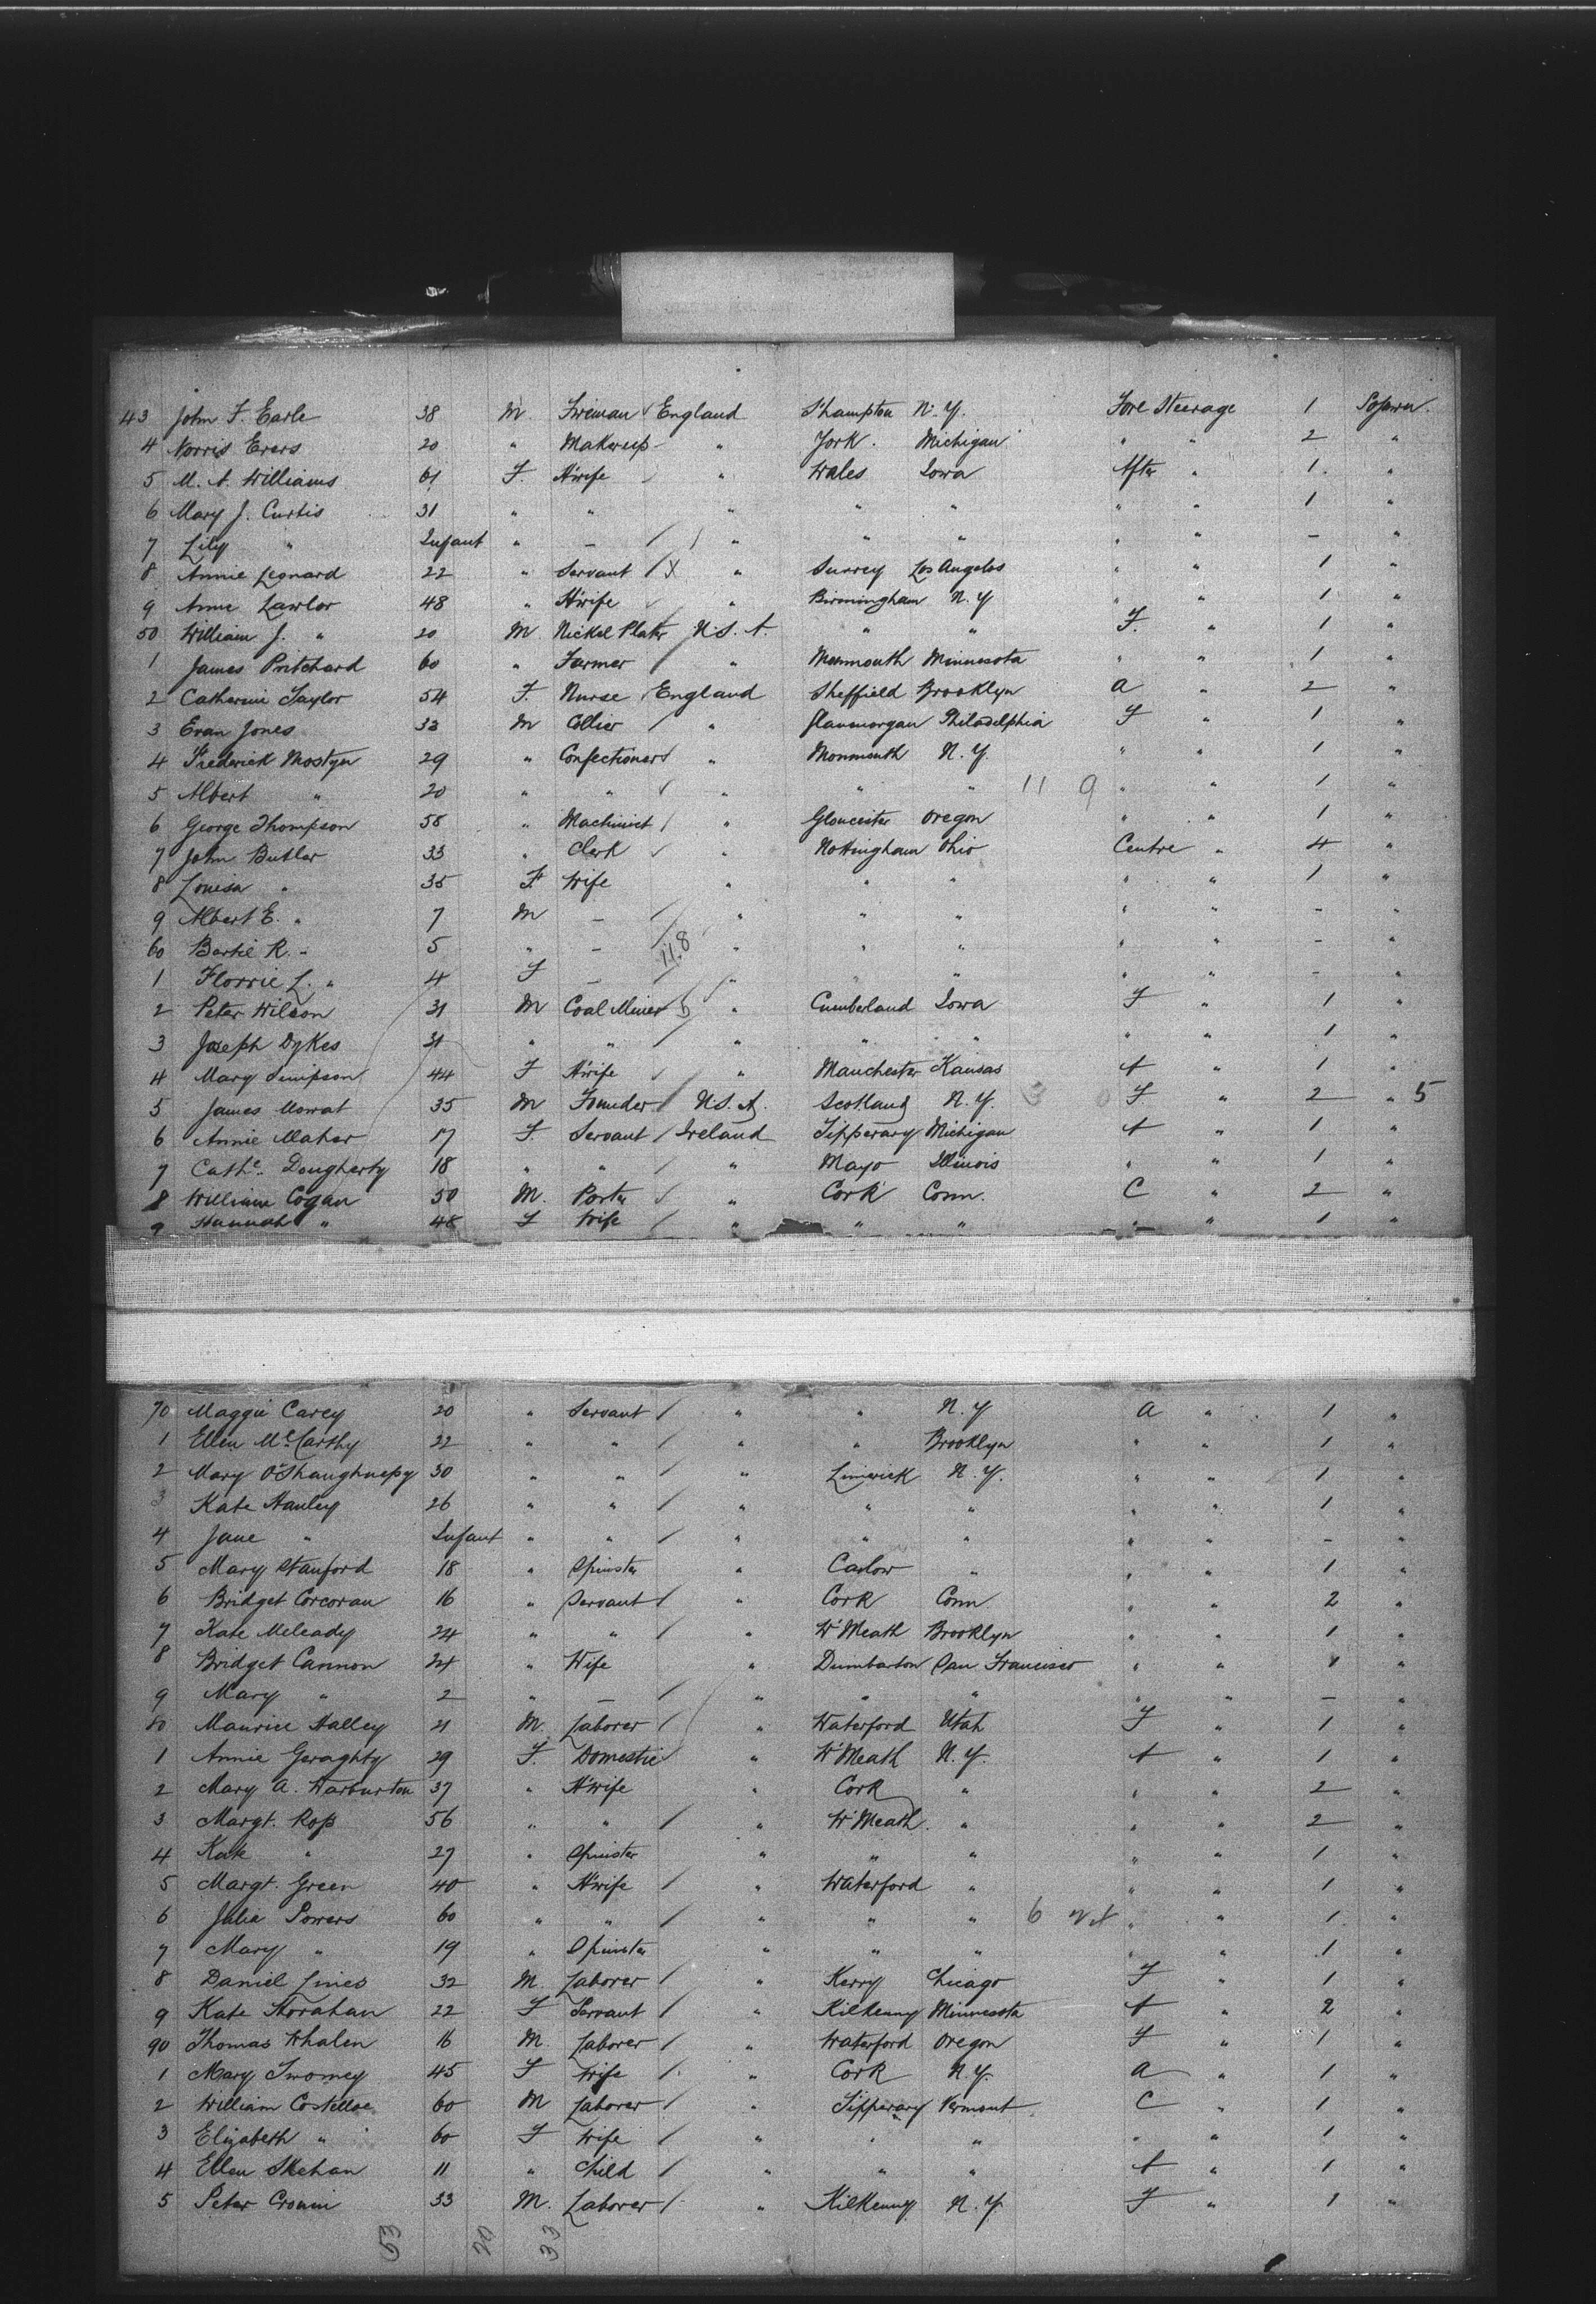 43 John F. Earle 38 M Fireman England S'hampton N.Y. Fore Steerage 1 Sojourn.
4 Norris Evers 20 " " York. Michigan " " 2 "
5 M. A. Williams 61 F. H'wife " Wales Iowa After " 1 "
6 Mary J. Curtis 31 " " " " " " " 1 "
7 Lily " Infant " - " " " " " - "
8 Annie Leonard 22 " Servant X " Surrey Los Angelos " " 1 "
9 Anne Lawlor 48 " H'wife " Birmingham N.Y " " 1 "
50 William J. " 20 M Nickel Plater U.S.A. " " F. " 1 "
1 James Pritchard 60 " Farmer " Monmouth Minnesota " " 1 "
2 Catherine Taylor 54 F. Nurse England Sheffield Brooklyn A " 2 "
3 Evan Jones 33 M Collier " Glamorgan Philadelphia F " 1 "
4 Frederick Mostyn 29 " Confectioner " Monmouth N.Y. " " 1 "
5 Albert " 20 " " " " " 11 9 " " 1 "
6 George Thompson 58 " Machinist " Gloucester Oregon " " 1 "
7 John Butler 33 " Clerk " Nottingham Ohio Centre " 4 "
8 Louisa " 35 F. Wife " " " " " 1 "
9 Albert E. " 7 M - " " " " " - "
60 Bertie R. " 5 " - 11.8 " " " " " - "
1 Florrie L. " 4 F - " " " " " - "
2 Peter Wilson 31 M Coal Miner " Cumberland Iowa F " 1 "
3 Joseph Dykes 31 " " " " " " " 1 "
4 Mary Simpson 44 F H'wife " Manchester Kansas A " 1 "
5 James Mowat 35 M Founder U.S.A. Scotland N.Y. 3 0 F " 2 " 5
6 Annie Maher 17 F. Servant Ireland Tipperary Michigan A " 1 "
7 Cathe. Dougherty 18 " " " Mayo Illinois " " 1 "
8 William Cogan 50 M. Porter " Cork Conn. C " 2 "
9 Hannah " 48 F Wife " " " " " 1 "
70 Maggie Carey 20 " Servant " " N.Y A " 1 "
1 Ellen McCarthy 22 " " " " Brooklyn " " 1 "
2 Mary O'Shaughnessy 30 " " " Limerick N.Y. " " 1 "
3 Kate Hanley 26 " " " " " " " 1 "
4 Jane " Infant " " " " " " " - "
5 Mary Stanford 18 " Spinster " Carlow " " " 1 "
6 Bridget Corcoran 16 " Servant " Cork Conn " " 2 "
7 Kate Meleady 24 " " " W'Meath Brooklyn " " 1 "
8 Bridget Cannon 24 " Wife " Dumbarton San Francisco " " 1 "
9 Mary " 2 " - " " " " " - "
80 Maurice Halley 21 M. Laborer " Waterford Utah F " 1 "
1 Annie Geraghty 29 F. Domestic " W'Meath N.Y. A " 1 "
2 Mary A. Warburton 37 " H'wife " Cork " " " 2 "
3 Margt. Ross 56 " " " W'Meath " " " 2 "
4 Kate " 27 " Spinster " " " " " 1 "
5 Margt. Green 40 " H'wife " Waterford " " " 1 "
6 Julia Powers 60 " " " " " 6 " " 1 "
7 Mary " 19 " Spinster " " " " " 1 "
8 Daniel Lines 32 M. Laborer " Kerry Chicago F " 1 "
9 Kate Horahan 22 F Servant " Kilkenny Minnesota A " 2 "
90 Thomas Whalen 16 M. Laborer " Waterford Oregon F " 1 "
1 Mary Twomey 45 F Wife " Cork N.Y. A " 1 "
2 William Costelloe 60 M Laborer " Tipperary Vermont C " 1 "
3 Elizabeth " 60 F Wife " " " " " 1 "
4 Ellen Skehan 11 " Child " " " A " 1 "
5 Peter Cronin 33 M. Laborer " Kilkenny N.Y. F " 1 "
53 20 33